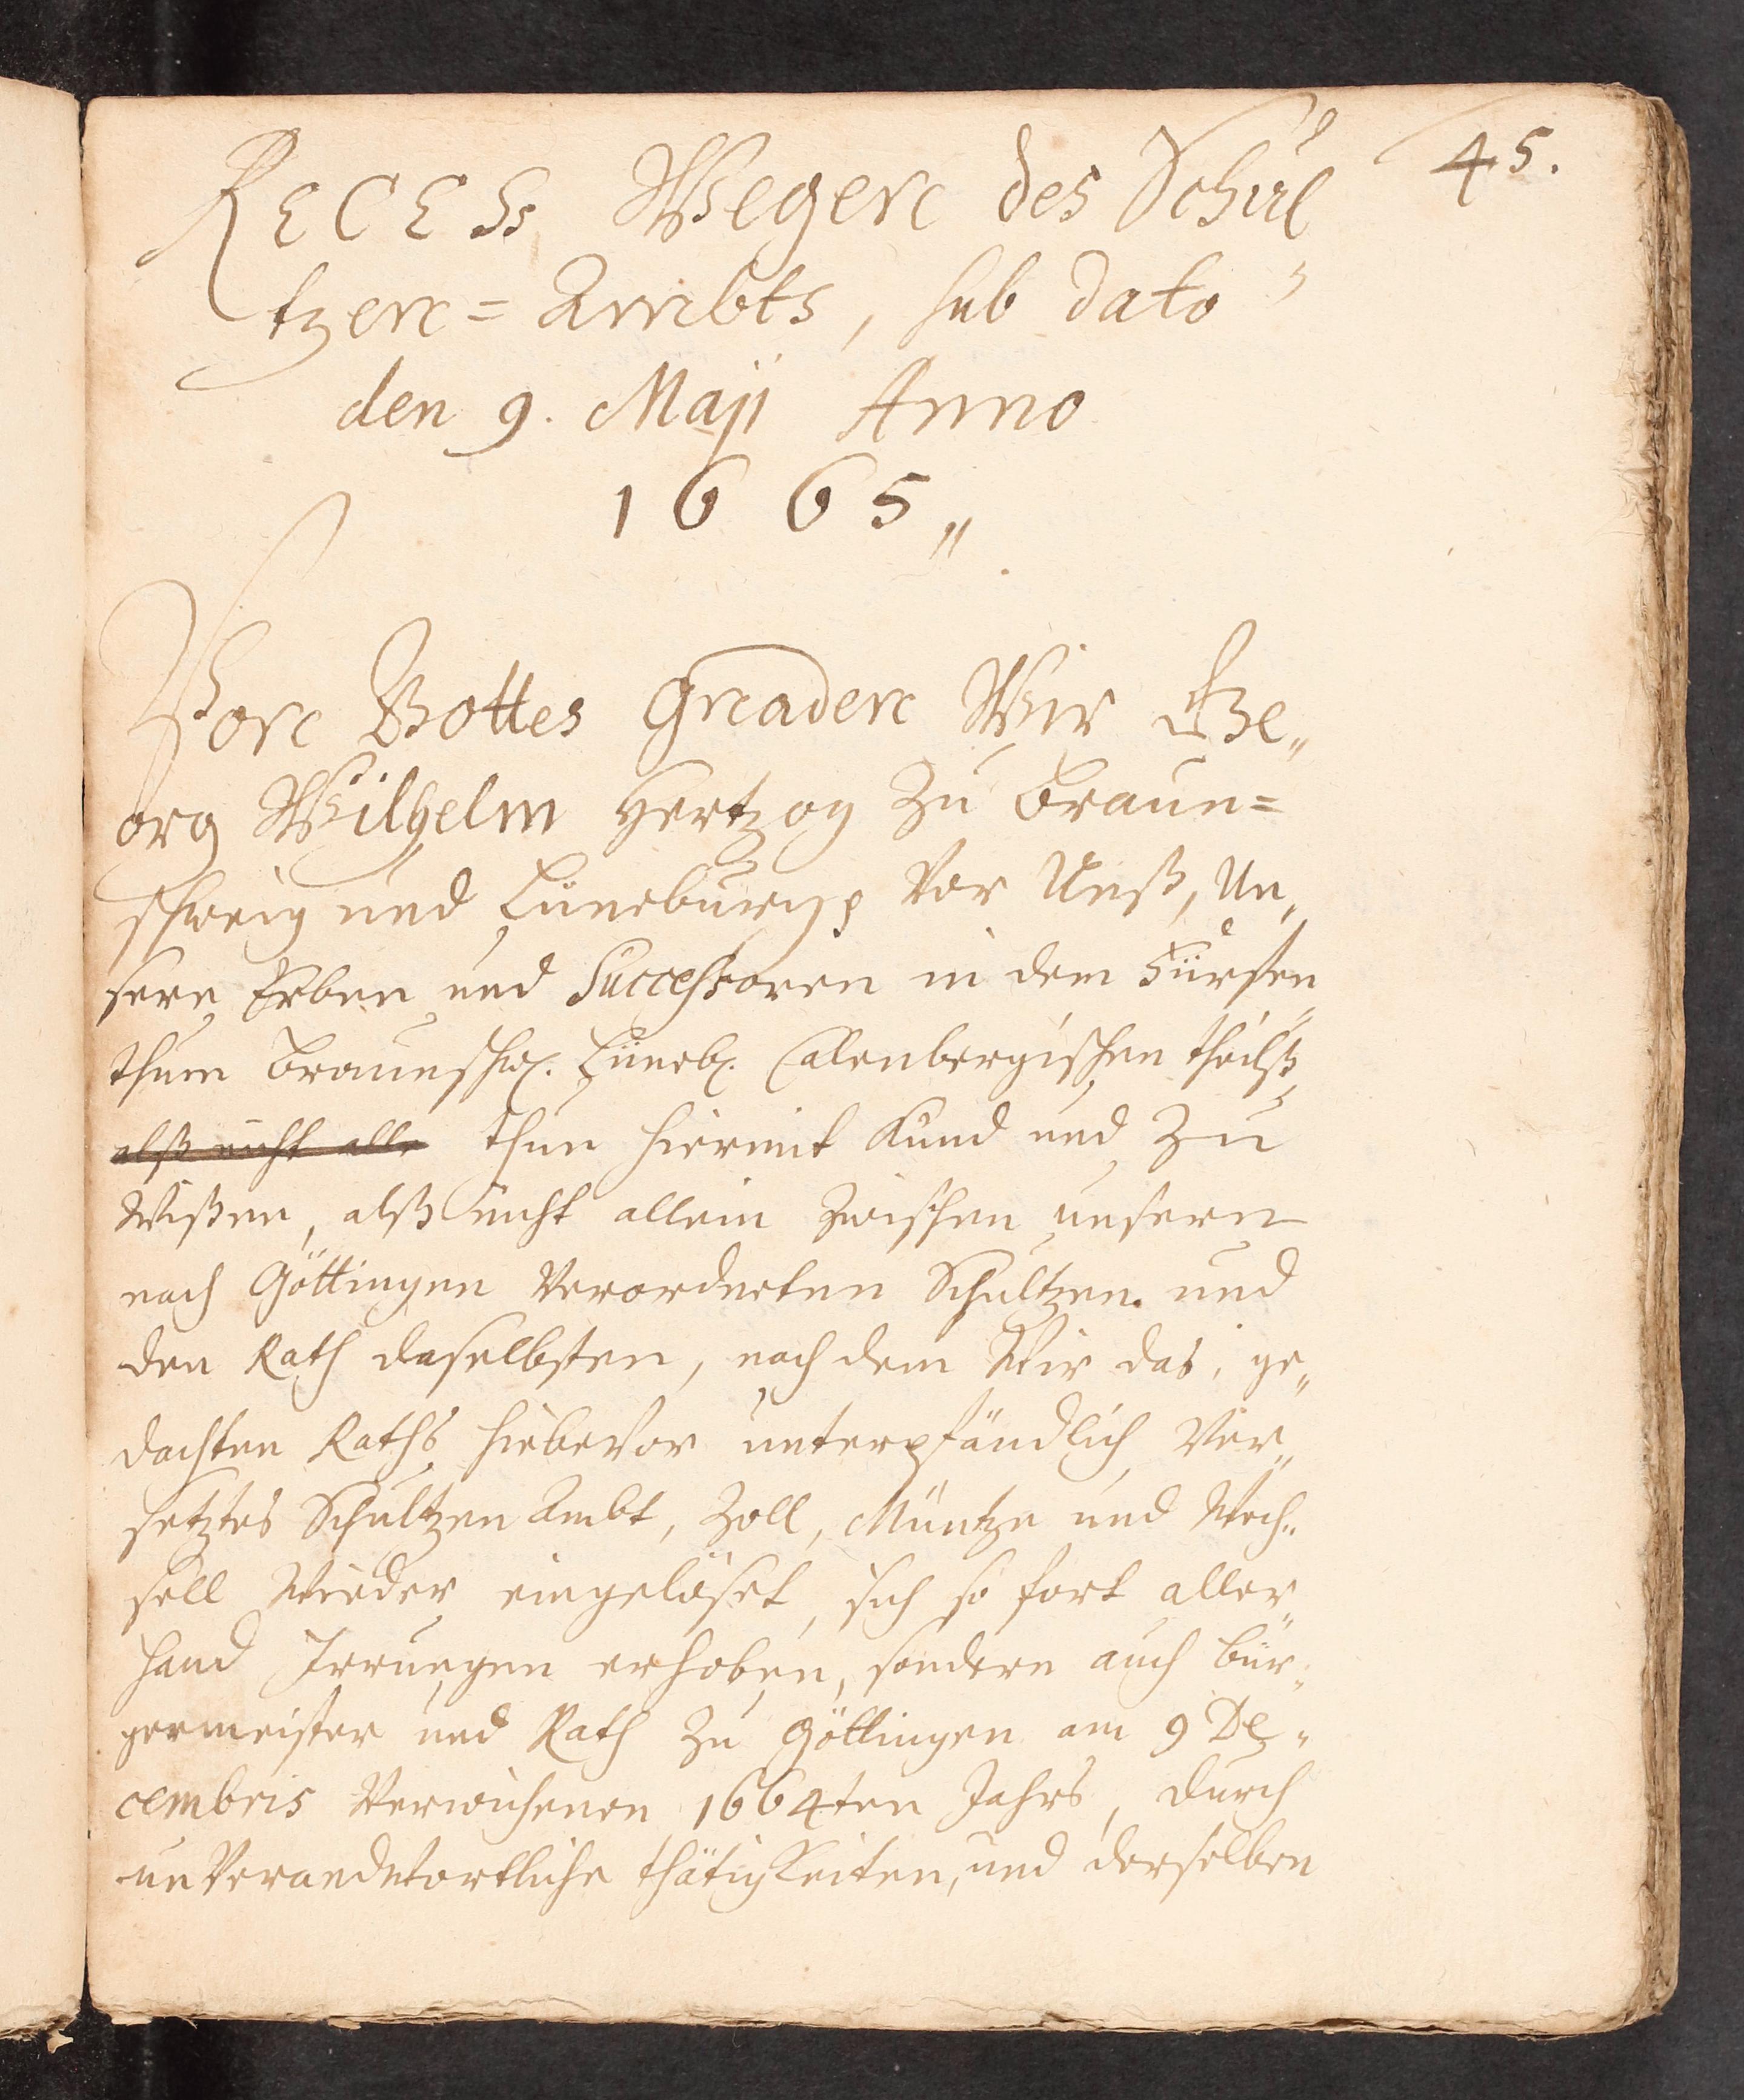 45.
Recess Wegen des Schul
tzen=Ambts, sub dato
den 9. Maji Anno
1665„
Von Gottes Gnaden Wir Ge„
org Wilhelm Hertzog zu Braun=
schweig und Lüneburg p Vor Unß, Un„
sere Erben und Successoren in dem Fürsten„
thum Braunschw. Lüneb. Calenbergischen theilß,
alß nicht alle thun hiermit Kund und Zu
Wißen, alß nicht allein zwischen unsern
nach Göttingen Verordneten Schultzen und
den Rath daselbsten, nach dem Wir das, ge„
dachten Raths hiebevor unterpfändlich Ver„
setztes Schultzen Ambt, Zoll, Müntze und Wech„
sell Wieder eingelöset, sich so fort aller„
hand Irrungen erhoben, sondern auch Bür„
germeister und Rath zu Göttingen am 9 De„
cembris Verwichenen 1664ten Jahrs, durch
unVerandtwortliche thätigkeiten, und derselben